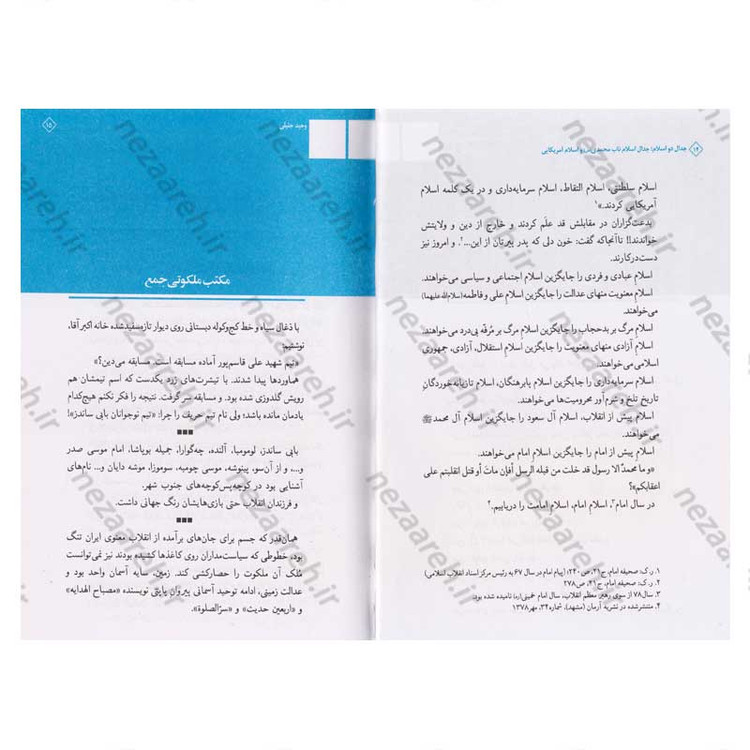 ۱۴ جدال دو اسلام؛ جدال اسلام ناب محمدی(ص) و اسلام آمریکایی
اسلام سلطنتی، اسلام التقاط، اسلام سرمایه‌داری و در یک کلمه اسلام
آمریکایی کردند.»۱
بدعت‌گزاران در مقابلش قد علَم کردند و خارج از دین و ولایتش
خواندند!! تا آنجاکه گفت: خون دلی که پدر پیرتان از این...۲. و امروز نیز
دست‌درکارند.
اسلام عبادی و فردی را جایگزین اسلام اجتماعی و سیاسی می‌خواهند.
اسلام معنویت منهای عدالت را جایگزین اسلام علی و فاطمه(سلام‌الله علیهما)
می‌خواهند.
اسلام مرگ بر بدحجاب را جایگزین اسلام مرگ بر مرفّه بی‌درد می‌خواهند.
اسلام آزادی منهای معنویت را جایگزین اسلام استقلال، آزادی، جمهوری
اسلامی می‌خواهند.
اسلام سرمایه‌داری را جایگزین اسلام پابرهنگان، اسلام تازیانه‌خوردگانِ
تاریخ تلخ و شرم‌آور محرومیت‌ها می‌خواهند.
اسلام پیش از انقلاب، اسلام آل سعود را جایگزین اسلام آل محمد ﷺ
می‌خواهند.
اسلام پیش از امام را جایگزین اسلام امام می‌خواهند.
«و ما محمدٌ الا رسول قد خلت من قبله الرسل أفإن ماتَ أو قتل انقلبتم علی
اعقابکم؟»
در سال امام۳، اسلام امام، اسلام امامت را دریابیم.۴
۱. ر.ک: صحیفه امام، ج۲۱، ص۲۴۰؛ (پیام امام در سال ۶۷ به رئیس مرکز اسناد انقلاب اسلامی)
۲. ر.ک: صحیفه امام، ج۲۱، ص۲۷۸
۳. سال۷۸ از سوی رهبر معظم انقلاب، سال امام خمینی(ره) نامیده شده بود.
۴. منتشرشده در نشریه آرمان (مشهد)، شماره۳۴، مهر۱۳۷۸
وحید جلیلی ۱۵
مکتب ملکوتی جمع
با ذغال سیاه و خط کج‌وکوله دبستانی روی دیوار تازه‌سفیدشده خانه اکبر آقا،
نوشتیم:
«تیم شهید علی قاسم‌پور آماده مسابقه است. مسابقه می‌دین؟»
هماوردها پیدا شدند. با تیشرت‌های زرد یکدست که اسم تیمشان هم
رویش گلدوزی شده بود. و مسابقه سر گرفت. نتیجه را فکر نکنم هیچ‌کدام
یادمان مانده باشد؛ ولی نام تیم حریف را چرا: «تیم نوجوانان بابی ساندز»!
■■■
بابی ساندز، لومومبا، آلنده، چه‌گوارا، جمیله بوپاشا، امام موسی صدر
و...، و از آن‌سو، پینوشه، موسی چومبه، سوموزا، موشه دایان و... نام‌های
آشنایی بود در کوچه‌پس‌کوچه‌های جنوب شهر.
و فرزندان انقلاب حتی بازی‌هایشان رنگ جهانی داشت.
■■■
همان‌قدر که جسم برای جان‌های برآمده از انقلاب معنوی ایران تنگ
بود، خطوطی که سیاست‌مداران روی کاغذها کشیده بودند نیز نمی‌توانست
مُلک آن ملکوت را حصارکشی کند. زمین، سایه آسمان واحد بود و
عدالت زمینی، ادامه توحید آسمانی پیروانِ پاپتیِ نویسنده «مصباح الهدایه»
و «اربعین حدیث» و «سرّالصلوة».
nezaareh.ir